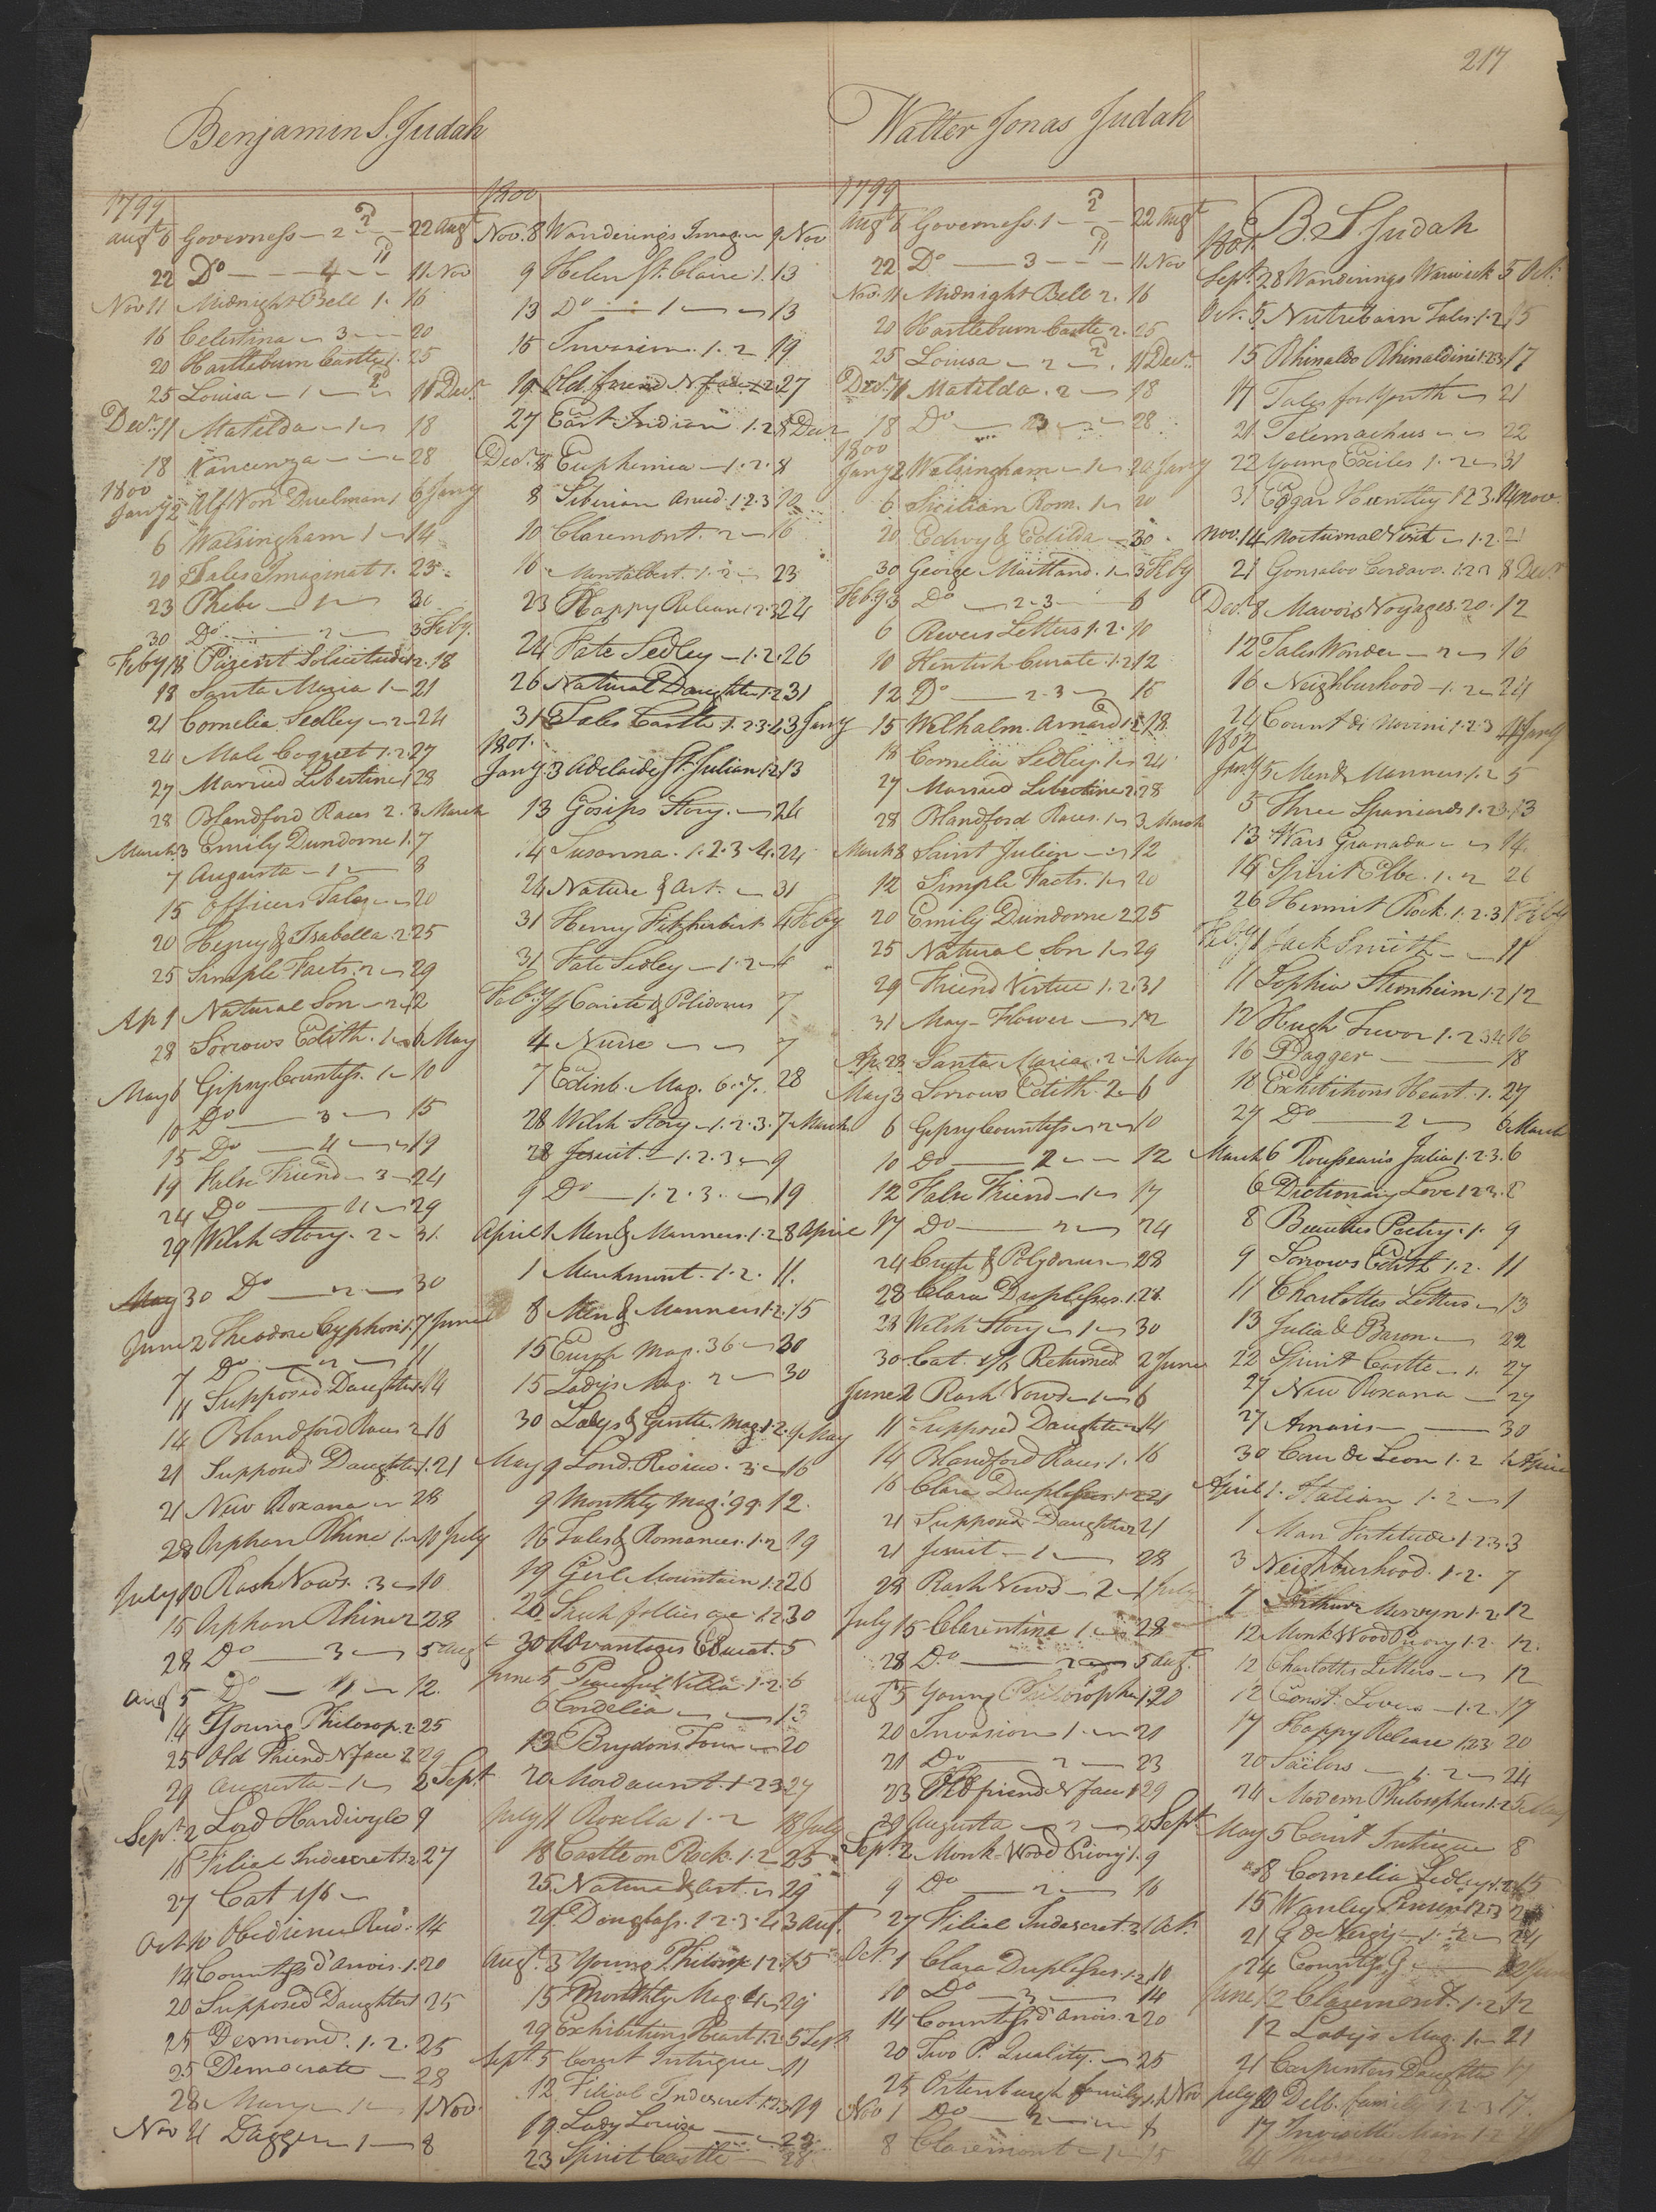 217
Benjamin S. Judah
1799
Augt 6 Governess — 2 — 22 Augt
22 Do — 4 — 11 Nov
Nov 11 Midnight Bell 1. 16
16 Celestina — 3 — 20
20 Hartlebourn Castle 1. 25
25 Louisa — 1 — 11 Decr
Decr 11 Matilda — 1 — 18
18 Vancenza — 28
1800
Jany 2 Alf Von Duelman 1 6 Jany
6 Walsingham 1 — 14
20 Tales Imaginat 1. 23
23 Phebe — 1 — 30
30 Do — 2 — 3 Feby.
Feby 18 Parent Solicitude 1.2. 18
18 Santa Maria 1 — 21
21 Cornelia Sedley — 2 — 24
24 Male Coquet 1.2 27
27 Married Libertine 1 28
28 Blandford Races 2. 3 March
March 3 Emily Dundorne 1. 7
7 Augusta — 1 — 8
15 Officers Tales — 20
20 Henry & Isabella. 2. 25
25 Simple Facts. 2 — 29
Ap 1 Natural Son — 2 — 2
28 Sorrows Edith. 1 — 6 May
May 6 Gipsy Countess. 1 — 10
10 Do — 3 — 15
15 Do — 4 — 19
19 False Friend — 3 — 24
24 Do — 4 — 29
29 Welsh Story. 2 — 31.
May 30 Do — 2 — 30
June 2 Theodore Cyphon 1. 7 June
7 Do — 2 — 11
11 Supposed Daughter 1. 14
14 Blandford Races 2 16
21 Supposed Daughter 1. 21
21 New Roxana — 28
28 Orphan Rhine 1 — 10 July
July 10 Rash Vows. 3 — 10
15 Orphan Rhine 2 28
28 Do — 3 — 5 Augt
Aug 5 Do — 4 — 12.
14 Young Philosop. 2 25
25 Old Friend N face 2 29
29 Augusta — 1 — 2 Sept
Sept. 2 Lord Hardivyle 9
16 Filial Indiscret 1.2 27
27 Cat 1/6 —
Oct 10 Obedience Rew. 14
14 Countess d'anois. 1. 20
20 Supposed Daughter 1 25
25 Desmond. 1. 2. 25
25 Democrate — 28
28 Mary — 1 — 1 Nov.
Nov 4 Dagger — 1 — 8
1800
Nov. 8 Wanderings Imag — 9 Nov
9 Helen St. Claire. 1. 13
13 Do — 1 — 13
15 Invasion. 1. 2 19
19 Old friend N face 1.2 27
27 East Indian 1. 2 8 Decr
Decr. 8 Euphemia — 1. 2. 8
8 Siberian Anecd. 1. 2. 3 12
10 Claremont. 2 — 16
16 Montalbert. 1. 2 — 23
23 Happy Release 1. 2. 3 24
24 Fate Sedley — 1. 2. 26
26 Natural Daughter 1. 2 31
31 Tales Castle 1. 2 3 4 3 Jany
1801.
Jany. 3 Adelaide St. Julian 1 2 13
13 Gosips Story. — 24
14 Susanna. 1. 2. 3 4. 24
24 Nature & Art. — 31
31 Henry Fitzherbert 4 Feby
31 Fate Sedley — 1. 2 — 4
Feby 4 Carite & Polidorus 7
4 Nurse — 7
7 Edinb. Mag. 6. 7. 28
28 Welsh Story — 1. 2. 3. 7 March
28 Jesuit. — 1. 2. 3 — 9
9 Do — 1. 2. 3. — 19
April 1 Men & Manners. 1. 2 8 April
1 Marchmont. 1. 2. 11.
8 Men & Manners 1. 2. 15
15 Europ Mag. 36 — 30
15 Ladys Mag. 2 — 30
30 Ladys & Gentle. Mag. 1. 2. 9 May
May 9 Lond. Review. 3 — 16
9 Monthly Mag. 99. 12.
16 Tales & Romances. 1. 2 19
19 Girl Mountain 1. 2 26
26 Such follies are 1. 2 30
30 Advantages Educat. 5
June 5 Peaceful Villa 1. 2. 6
6 Cordelia — 13
13 Brydons Tour — 20
20 Mordaunt. 1. 2 3 27
July 11 Rosella 1. 2 18 July
18 Castle on Rock. 1. 2 25
25 Nature & Art. — 29
29 Douglass. 1 2. 3. 4 3 Aug.
Augt. 3 Young Philosop 1 2. 15
15 Monthly Mag. 4 — 29
29 Exhibitions Heart 1. 2. 5 Sept.
Sept 5 Court Intrigue — 11
12 Filial Indescret 1. 2. 3. 19
19 Lady Louisa — 23
23 Spirit Castle — 28
Walter Jonas Judah
1799
Augt 6 Governess. 1 — 22 Augt
22 Do — 3 — 11 Nov
Nov. 11 Midnight Bell 2. 16
20 Hartlebourn Castle 2. 25
25 Louisa — 2 — 11 Decr.
Decr. 11 Matilda. 2 — 18
18 Do — 3 — 28
1800
Jany 2 Walsingham — 1 — 20 Jany
6 Sicilian Rom. 1 — 20
20 Edwy & Edilda — 30
30 George Maitland. 1 — 3 Feby
Feby. 3 Do — 2. 3 — 6
6 Revers Letters 1. 2. 10
10 Kentish Curate. 1. 2 12
12 Do — 2. 3 — 15
15 Welhalm. Arnard 1. 2 18
18 Cornelia Sedley. 1 — 24
27 Married Libertine 2. 28
28 Blandford Races. 1 — 3 March
March 8 Saint Julien — 12
12 Simple Facts. 1 — 20
20 Emily Dundorne 2 25
25 Natural Son 1 — 29
29 Friend Virtue 1. 2. 31
31 May-Flower — 12
Ap. 28 Santa Maria. 2 — 1 May
May 3 Sorrows Edith. 2 — 6
6 Gipsy Countess — 2 — 10
10 Do — 2 — 12
12 False Friend — 1 — 17
17 Do — 2 — 24
24 Caryte & Polydorus — 28
28 Clara Duplessus. 1. 28.
28 Welsh Story — 1 — 30
30 Cat. 1/6 Returned 2 June
June 2 Rash Vows — 1 — 6
11 Supposed Daughter 2 14
14 Blandford Races. 1. 16
16 Clara Duplessus. 1. 2 21
21 Supposed Daughter 2 21
21 Jesuit — 1 — 28
28 Rash Vows — 2 — 1 July
July 15 Clarentina 1 — 28
28 Do. — 2 — 5 Augt.
Augt 5 Young Philosopher 1. 20
20 Invasion 1. — 21
21 Do — 2 — 23
23 Old friend N face 1 29
29 Augusta — 2 — 2 Sept.
Sept. 2 Monk-Wood Priory 1. 9
9 Do — 2 — 16
27 Filial Indescret. 3 1 Oct.
Oct. 1 Clara Duplessus. 1. 2 10
10 Do — 3 — 14
14 Countess d'anois. 2 20
20 Two P. Quality. — 25
25 Ortenburgh family 1. 1 Nov
Nov 1 Do — 2 — 8
8 Claremont — 1 — 15
B. S. Judah
1801.
Sept. 28 Wanderings Warwick 5 Oct.
Oct. 5 Nutrebourn Tales. 1. 2 15
15 Rhinaldo Rhinaldini 1. 2 3 17
17 Tales for Youth — 21
21 Telemachus — 22
22 Young Exiles 1. 2 — 31
31 Edgar Huntley 1 2 3. 14 Nov.
Nov. 14 Nocturnal Visit — 1. 2. 21
21 Gonsalvo Cordavo. 1. 2 3 8 Decr
Decr. 8 Mavois Voyages. 20. 12
12 Tales Wonder — 2 — 16
16 Neighburhood — 1. 2 — 24
24 Count di Novini 1. 2. 3 4 Jany
1802
Jany 5 Men & Manners. 1. 2 5
5 Three Spaniards 1. 2. 3. 13
13 Wars Granada — 14
14 Spirit Elbe. 1. 2 26
26 Hermit Rock. 1. 2. 3 1 Feby
Feby. 1 Jack Smith — 11
11 Sophia Sternheim 1. 2 12
12 Hugh Trevor 1. 2 3 4 16
16 Dagger — 18
18 Exhibitions Heart. 1. 27
27 Do — 2 — 6 March
March 6 Rousseau's Julia 1. 2. 3. 6
6 Dictionary Love 1 2 3. 8
8 Beauties Poetry. 1. 9
9 Sorrows Edith 1. 2. 11
11 Charlottes Letters — 13
13 Julia de Baron — 22
22 Spirit Castle — 1. 27
27 New Roxana — 27
27 Amaris — 30
30 Coeur de Leon 1. 2 1 April
April 1. Italian 1. 2 — 1
1 Man Fortitude 1. 2. 3. 3
3 Neighburhood. 1. 2. 7
7 Arthur Mervyn 1. 2 12
12 Monk Wood Priory 1. 2. 12.
12 Charlottes Letters — 12
12 Const. Lovers — 1. 2. 17
17 Happy Release 1 2 3 20
20 Sailors — 1. 2 — 24
24 Modern Philosophers 1. 2 5 May
May 5 Court Intrigue 8
8 Cornelia Sedley 1. 2 15
15 Wanley Penson 1 2. 3
21 G de Vergy — 1. 2 — 24
24 Countess G.
June 12 Claremont. 1. 2 12
12 Ladys Mag. 1 — 21
21 Carpenters Daughter 17
July 10 Delb. family 1. 2. 3 17.
17
24